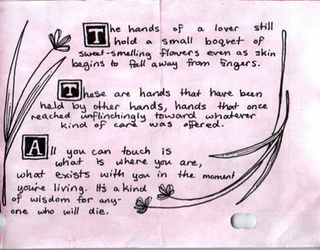 The hands of a lover still
hold a small boqvet of
sweet-smelling flowers even as skin
begins to fall away from fingers.
These are hands that have been
held by other hands, hands that once
reached unflinchingly toward whatever
kind of care was offered.
All you can touch is
what is where you are,
what exists with you in the moment
you're living. It's a kind
of wisdom for any-
one who will die.